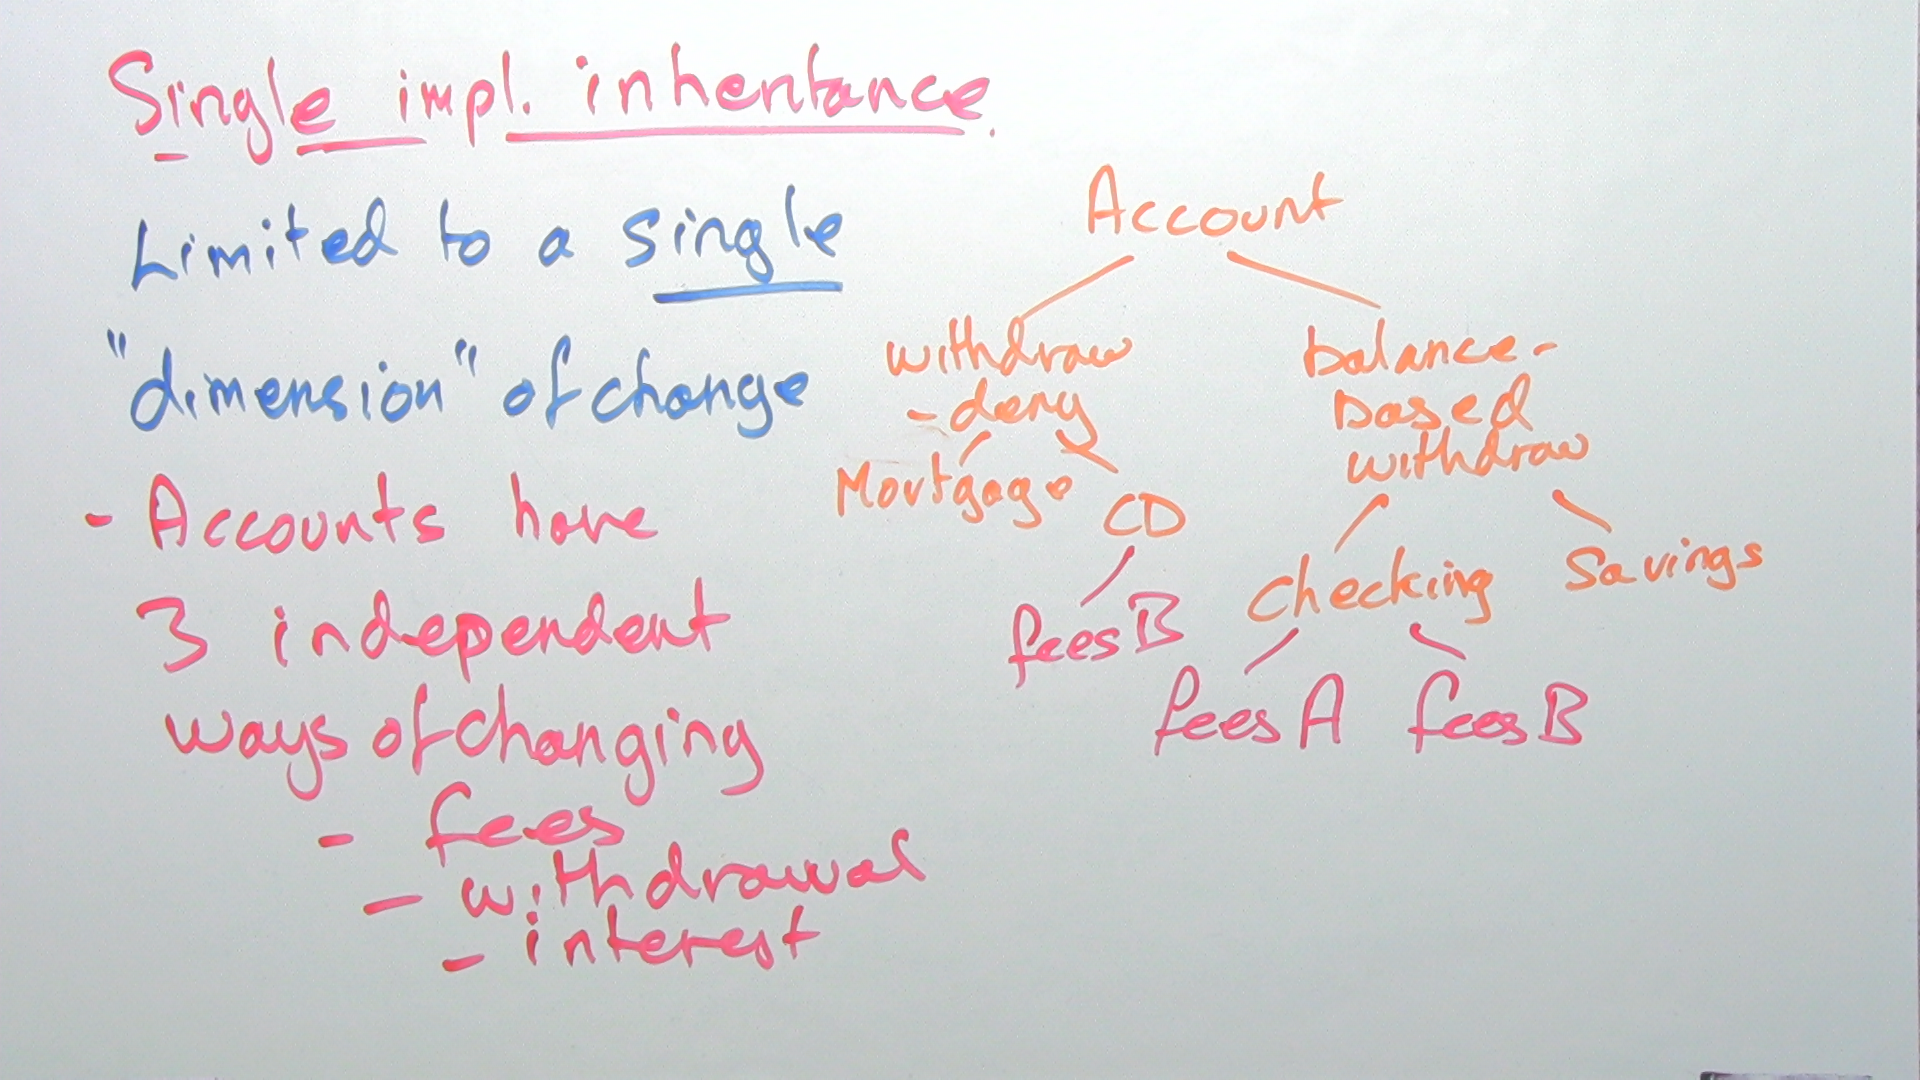 Single impl. inheritance.
Limited to a single
"dimension" of change
- Accounts have
3 independent
ways of changing
- fees
- withdrawal
- interest
Account
withdraw
-deny
balance-
based
withdraw
Mortgage
CD
Checking
Savings
fees B
fees A
fees B